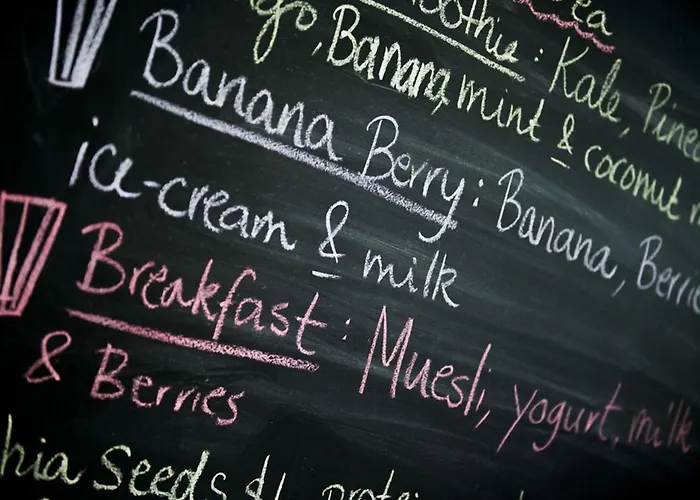 Smoothie : Kale, Pinea
Banana, mint & coconut
Banana Berry : Banana, Berrie
ice-cream & milk
Breakfast : Muesli, yogurt, milk
& Berries
hia Seeds &